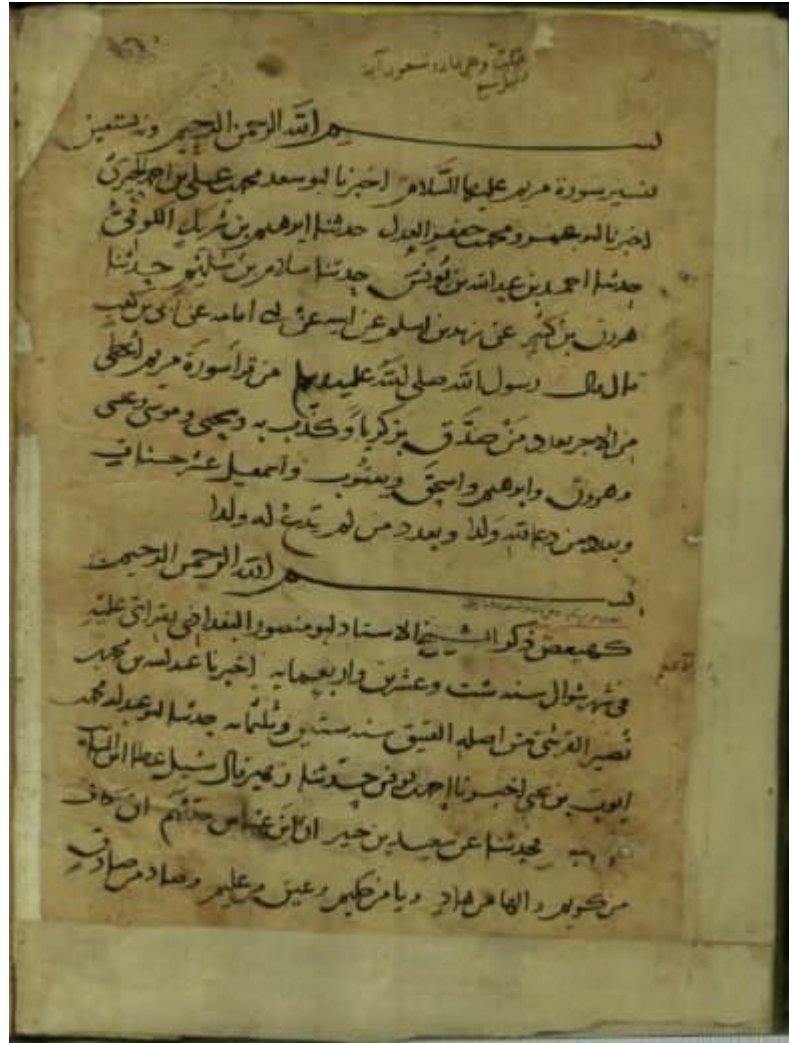 مكية وهي ثمان وتسعون آية
بسم الله الرحمن الرحيم وبه نستعين
تفسير سورة مريم عليها السلام اخبرنا ابو سعد محمد بن علي بن احمد الحيري
اخبرنا ابو عمرو محمد بن جعفر العدل حدثنا ابرهيم بن شريك الكوفي
حدثنا احمد بن عبد الله بن يونس حدثنا سلام بن سليم حدثنا
هرون بن كثير عن زيد بن اسلم عن ابيه عن ابي امامه عن ابي بن كعب
قال قال رسول الله صلى الله عليه وسلم من قرا سورة مريم اعطي
من الاجر بعدد من صدق بزكريا وكذب به ويحيى وموسى وعيسى
وهرون وابرهيم واسحق ويعقوب واسمعيل عشر حسنات
وبعدد من دعا لله ولدا وبعدد من لم يدع له ولدا
بسم الله الرحمن الرحيم
كهيعص ذكر الشيخ الاستاد ابو منصور البغدادي بقراتي عليه
في شهر شوال سنه ست وعشرين واربعمايه اخبرنا عبد الله بن محمد
نصير القرشي من اصله العتيق سنه ستين وثلثمايه حدثنا ابو عبد الله محمد
ايوب بن يحيى اخبرنا احمد بن يونس حدثنا زهير قال سئل عطا ابن السايب
فحدثنا عن سعيد بن جبير ان ابن عباس حدثهم ان كاف
من كريم والها من هاد ويا من حكيم وعين من عليم وصاد من صادق